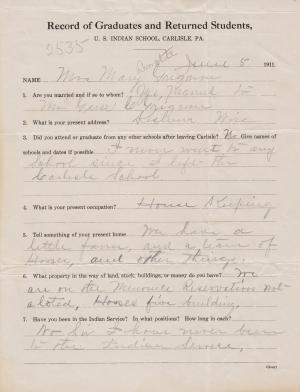 Record of Graduates and Returned Students,
U. S. INDIAN SCHOOL, CARLISLE, PA.
2535
June 5 1911.
NAME Mrs Mary
1. Are you married and if so to whom? Yes, Married to
Mr
2. What is your present address? Wisc
3. Did you attend or graduate from any other schools after leaving Carlisle? No Give names of
schools and dates if possible I never went to any
school since I left the
Carlisle School.
4. What is your present occupation? House Keeping
5. Tell something of your present home We have a
little farm, and a team of
Horses, and other things.
6. What property in the way of land, stock, buildings, or money do you have? We
are on the Menominee Reservation not
aloted, Horses five building.
7. Have you been in the Indian Service? In what positions? How long in each?
No Sir I have never been
to the Indian Service,
(Over)